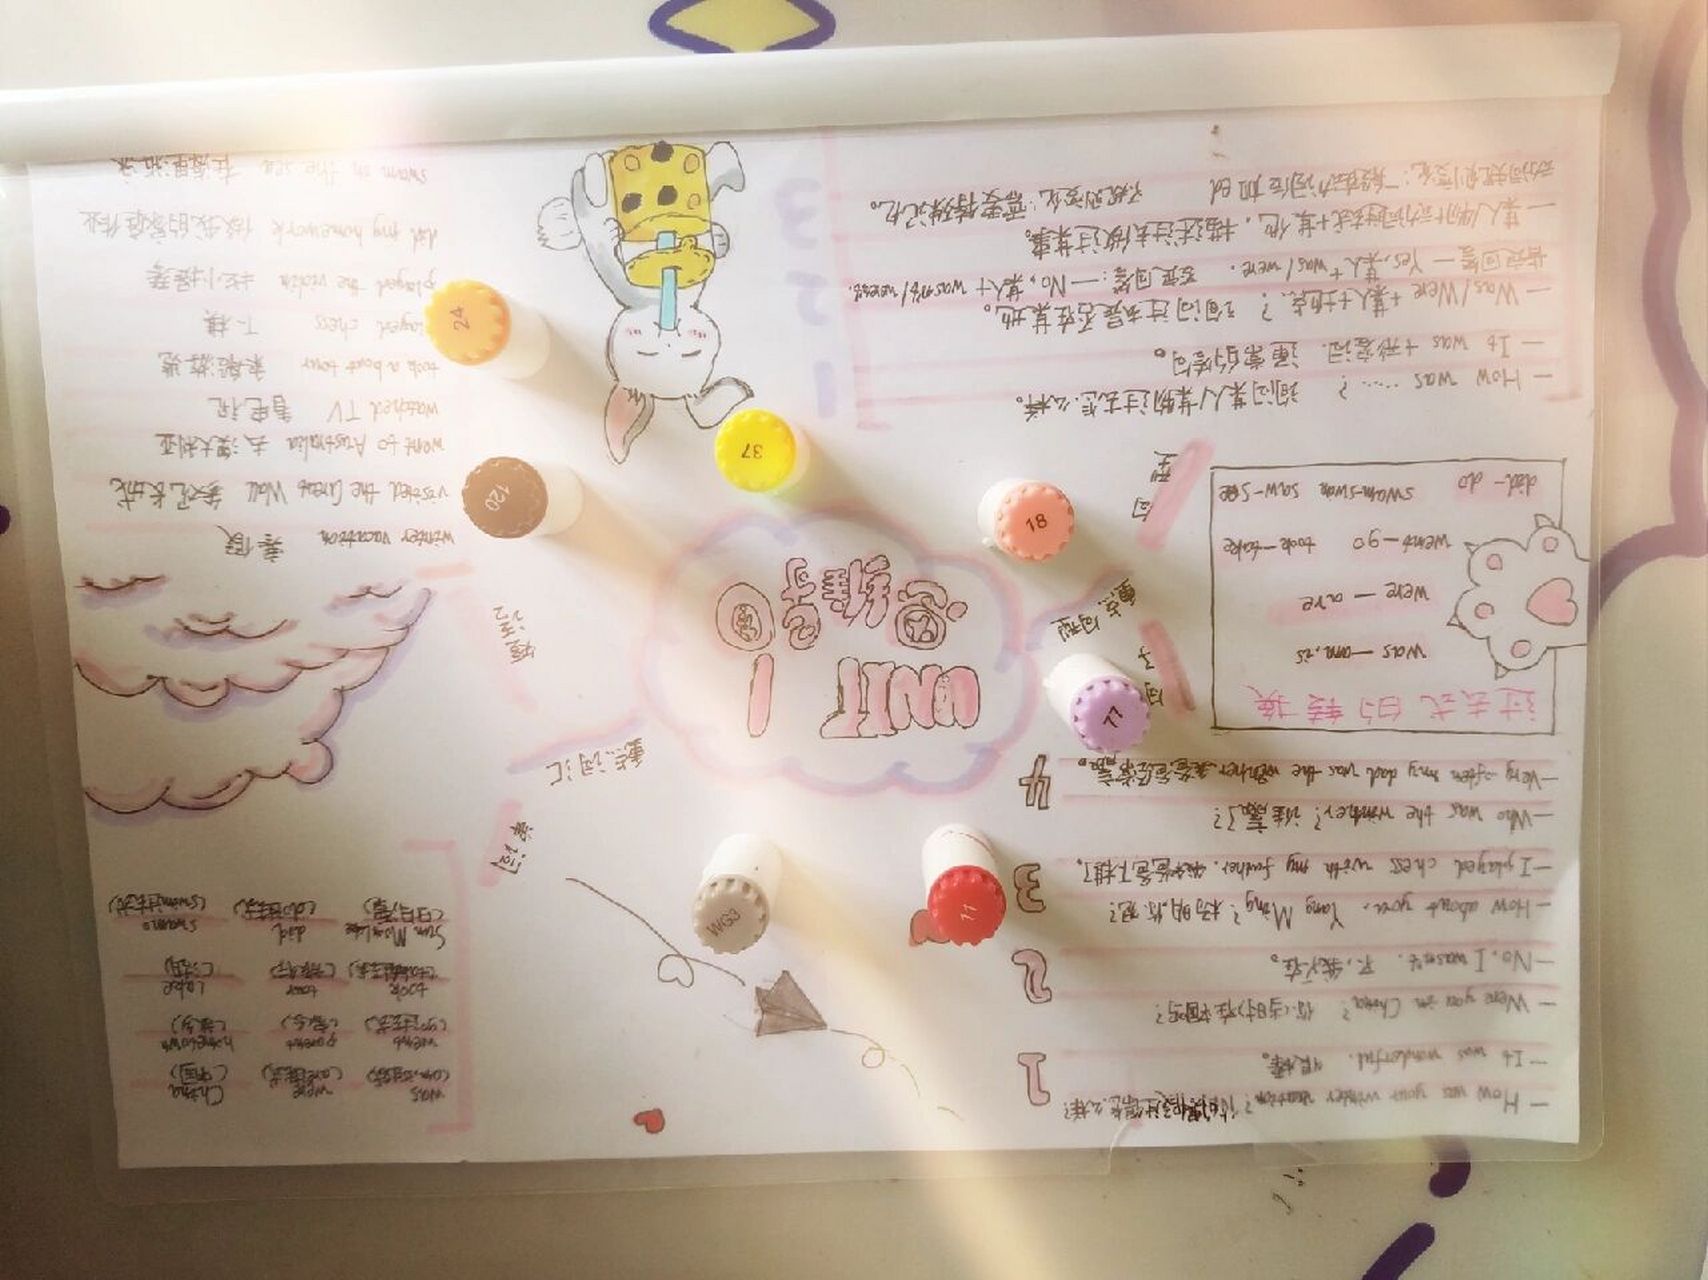 UNIT 1
思维导图
重点句型
句子
1
—How was your winter vacation?
—It was wonderful. 很棒。
2
—Were you in China? 你(当时)在中国吗?
—No, I wasn't. 不,我不在。
3
—How about you, Yang Ming? 杨明,你呢?
—I played chess with my father. 我和爸爸下棋了。
4
—Who was the winner? 谁赢了?
—Very often my dad was the winner.
过去式的转换
was—am,is
were—are
went—go took—take
did-do swam-swim saw-see
句型
1
—How was ……? 询问某人/某物过去怎么样。
—It was + 形容词.
2
—Was/Were + 某人+地点? 询问过去是否在某地。
肯定回答—Yes,某人+was/were. 否定回答:—No,某人+wasn't/weren't.
3
—某人/物+动词过去式+其他. 描述过去做过某事。
动词规则变化:一般在动词后加ed 不规则变化:需要特殊记忆。
重点词汇
单词
was were China
(am,is过去式) (are过去式) (中国)
went parent hometown
(go过去式) (家乡)
took tour lake
(take过去式) (旅行) (湖)
Sun Moon Lake did swam
(日月潭) (do过去式) (swim过去式)
短语
winter vacation 寒假
visited the Great Wall 参观长城
went to Australia 去澳大利亚
watched TV 看电视
took a boat tour 乘船游览
played chess 下棋
played the violin 拉小提琴
did my homework 做我的家庭作业
swam in the sea 在海里游泳
24
120
37
18
77
11
WG3